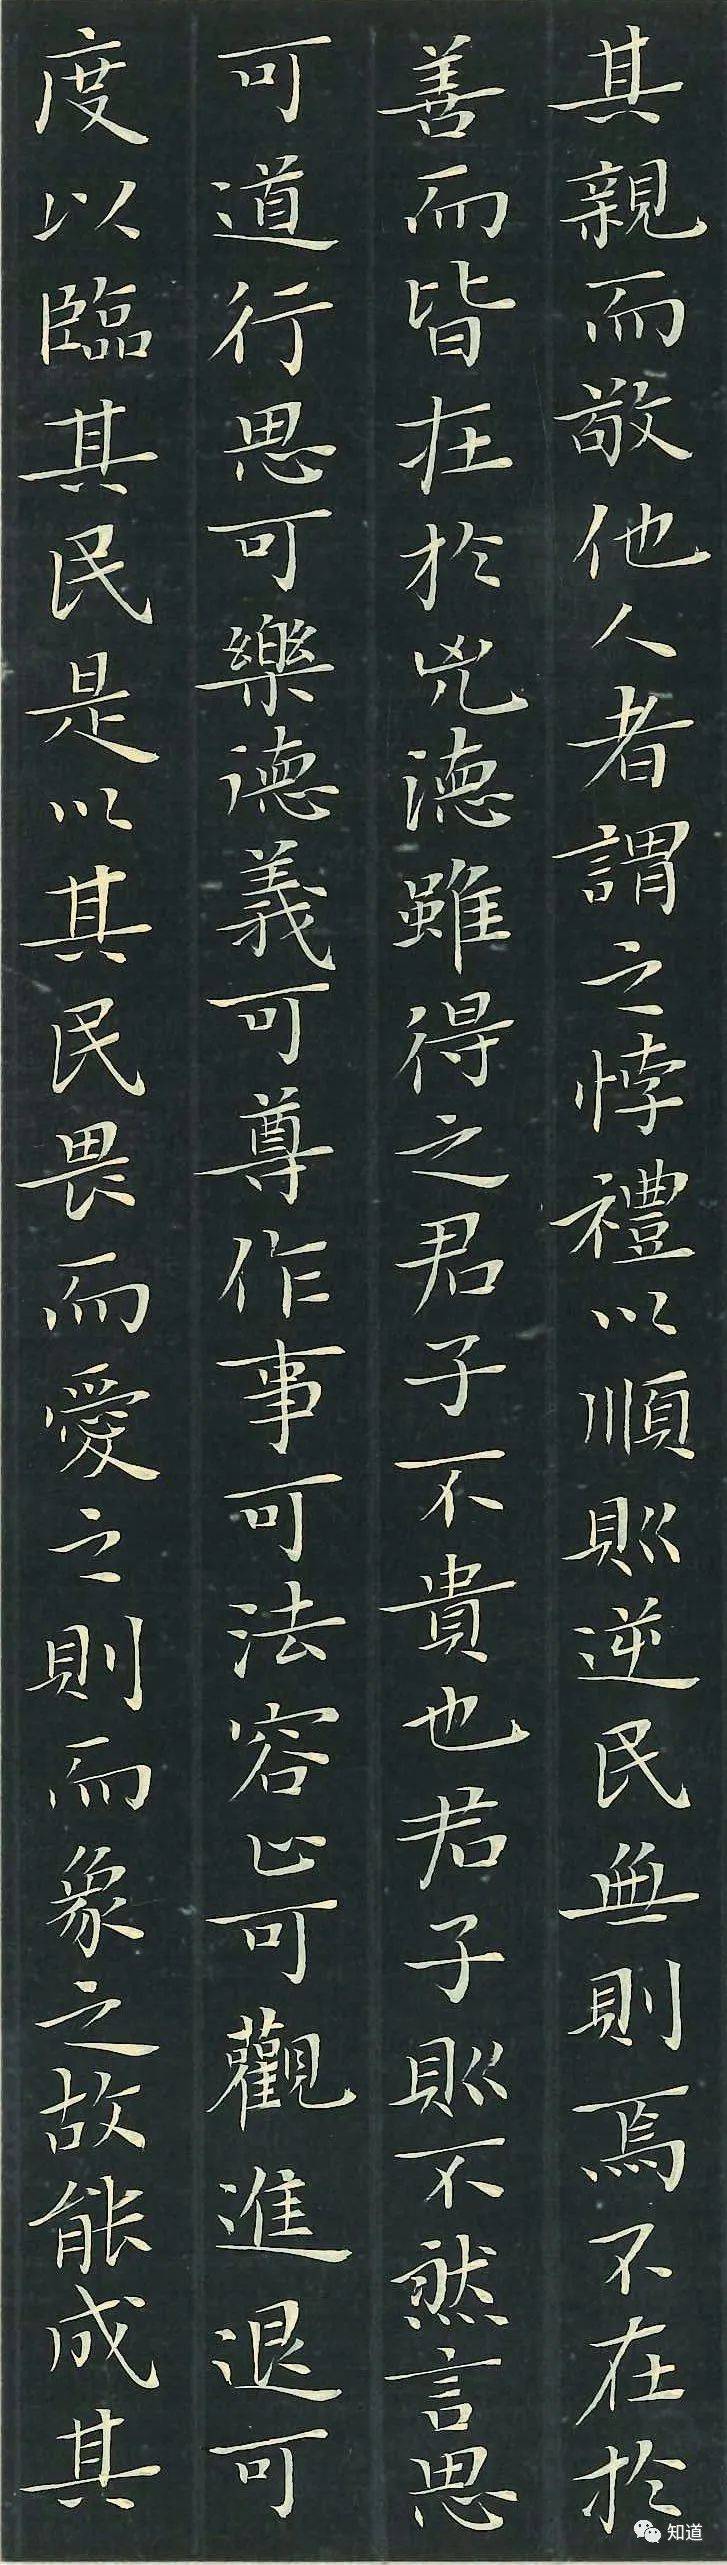 其親而敬他人者謂之悖禮以順則逆民無則焉不在於
善而皆在於凶德雖得之君子不貴也君子則不然言思
可道行思可樂德義可尊作事可法容止可觀進退可
度以臨其民是以其民畏而愛之則而象之故能成其
知道